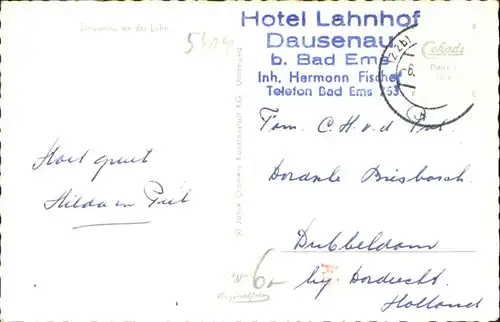 Dausenau an der Lahn
5404
Hotel Lahnhof
Dausenau
b. Bad Ems
Inh. Hermann Fischer
Telefon Bad Ems 753
Cekade
Fam. C. H. v. d.
Dordtse Biesbosch
Dubbeldam
bij Dordrecht.
Holland
Hartl groet
Hilda en Piet
Originalfoto
6,-